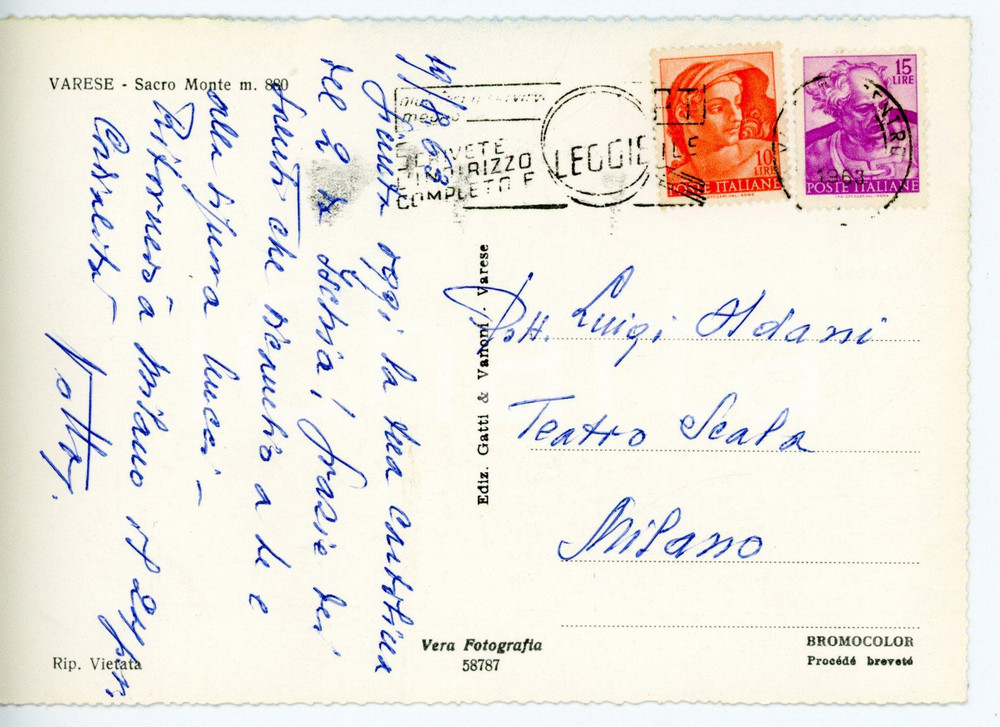 VARESE - Sacro Monte m. 880
SCRIVETE
L'INDIRIZZO
COMPLETO E
LEGGIBILE
10
LIRE
POSTE ITALIANE
15
LIRE
POSTE ITALIANE
1963
19/8/63
oggi la tua cartolina
del 2 da Ischia, grazie dei
saluti che ricambio a te e
alla tua
Ritornerò a Milano il 24 p.v.
Cordialità
Votto.
Ediz. Gatti & Vanoni - Varese
Dott. Luigi Oldani
Teatro Scala
Milano
Rip. Vietata
Vera Fotografia
58787
BROMOCOLOR
Procédé breveté